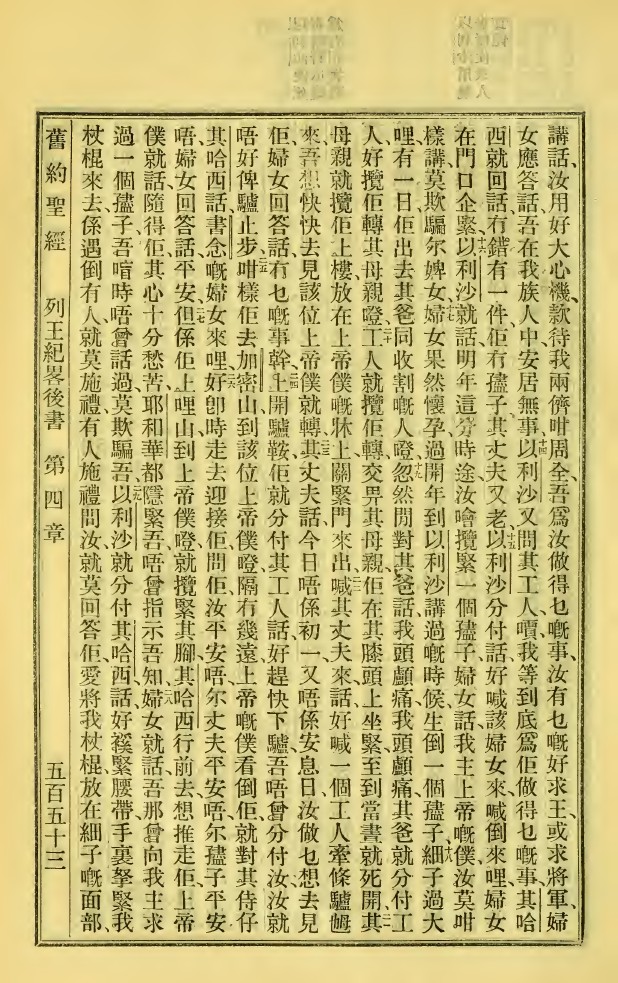 講話、汝用好大心機款待我兩儕、咁周全、吾爲汝做得乜嘅事、汝有乜嘅好求王、或求將軍、婦
女應答話、吾在我族人中安居無事、十四以利沙又問其工人嘪、我等到底爲佢做得乜嘅事、其哈
西就回話、冇錯、有一件、佢冇孻子、其丈夫又老、十五以利沙分付話、好喊該婦女來、喊倒來哩、婦女
在門口企緊、十六以利沙就話、明年這分時途、汝噲攬緊一個孻子、婦女話、我主上帝嘅僕、汝莫咁
樣講、莫欺騙尔婢女、十七婦女果然懷孕、過開年到以利沙講過嘅時候、生倒一個孻子、十八細子過大
哩、有一日佢出去其爸同收割嘅人嶝、十九忽然閒對其爸話、我頭顱痛、我頭顱痛、其爸就分付工
人、好攬佢轉其母親嶝、二十工人就攬佢轉、交畀其母親、佢在其膝頭上坐緊、至到當晝就死開、二一其
母親就攬佢上樓、放在上帝僕嘅牀上、關緊門來出、二二喊其丈夫來話、好喊一個工人、牽條驢𫲧
來、吾想快快去見該位上帝僕就轉、二三其丈夫話、今日唔係初一、又唔係安息日、汝做乜想去見
佢、婦女回答話、冇乜嘅事幹、二四上開驢鞍、佢就分付其工人話、好趕快下驢、吾唔曾分付汝、汝就
唔好俾驢止步、二五咁樣佢去加密山、到該位上帝僕嶝、隔冇幾遠、上帝嘅僕看倒佢、就對其侍仔
其哈西話、書念嘅婦女來哩、二六好卽時走去迎接佢、問佢、汝平安唔、尔丈夫平安唔、尔孻子平安
唔、婦女回答話、平安、二七但係佢上哩山、到上帝僕嶝、就攬緊其腳、其哈西行前去、想推走佢、上帝
僕就話、隨得佢、其心十分愁苦、耶和華都隱緊吾、唔曾指示吾知、二八婦女就話、吾那曾向我主求
過一個孻子、吾喑時唔曾話過、莫欺騙吾、二九以利沙就分付其哈西話、好䙅緊腰帶、手裏拏緊我
杖棍來去、係遇倒有人、就莫施禮、有人施禮問汝、就莫回答佢、愛將我杖棍、放在細子嘅面部、
舊約聖經 列王紀畧後書 第四章 五百五十三